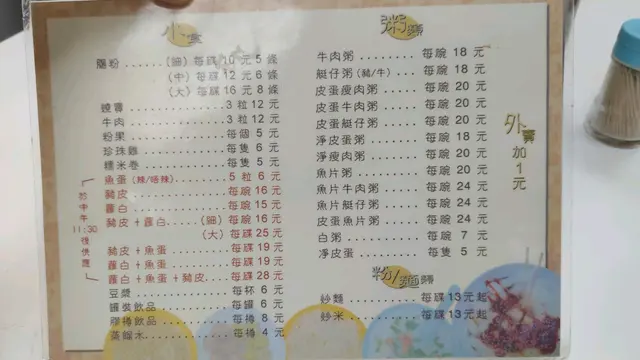 小食
腸粉......(細) 每碟 10 元 5 條
(中) 每碟 12 元 6 條
(大) 每碟 16 元 8 條
燒賣............3 粒 12 元
牛肉............3 粒 12 元
粉果............每個 5 元
珍珠雞............每隻 6 元
糯米卷............每隻 5 元
魚蛋 (辣/唔辣)............5 粒 6 元
豬皮............每碗 16 元
蘿白............每碗 15 元
豬皮+蘿白......(細) 每碗 16 元
(大) 每碟 25 元
豬皮+魚蛋............每碟 19 元
蘿白+魚蛋............每碟 19 元
蘿白+魚蛋+豬皮......每碟 28 元
於中午11:30後供應
豆漿............每杯 6 元
罐裝飲品............每罐 6 元
膠樽飲品............每樽 8 元
蒸餾水............每樽 4 元
粥類
牛肉粥............每碗 18 元
艇仔粥 (豬/牛)......每碗 18 元
皮蛋瘦肉粥............每碗 20 元
皮蛋牛肉粥............每碗 20 元
皮蛋艇仔粥............每碗 20 元
淨皮蛋粥............每碗 18 元
淨瘦肉粥............每碗 20 元
魚片粥............每碗 20 元
魚片牛肉粥............每碗 24 元
魚片艇仔粥............每碗 24 元
皮蛋魚片粥............每碗 24 元
白粥............每碗 7 元
淨皮蛋............每隻 5 元
粉/麵類
炒麵............每碟 13元起
炒米............每碟 13元起
外賣加1元